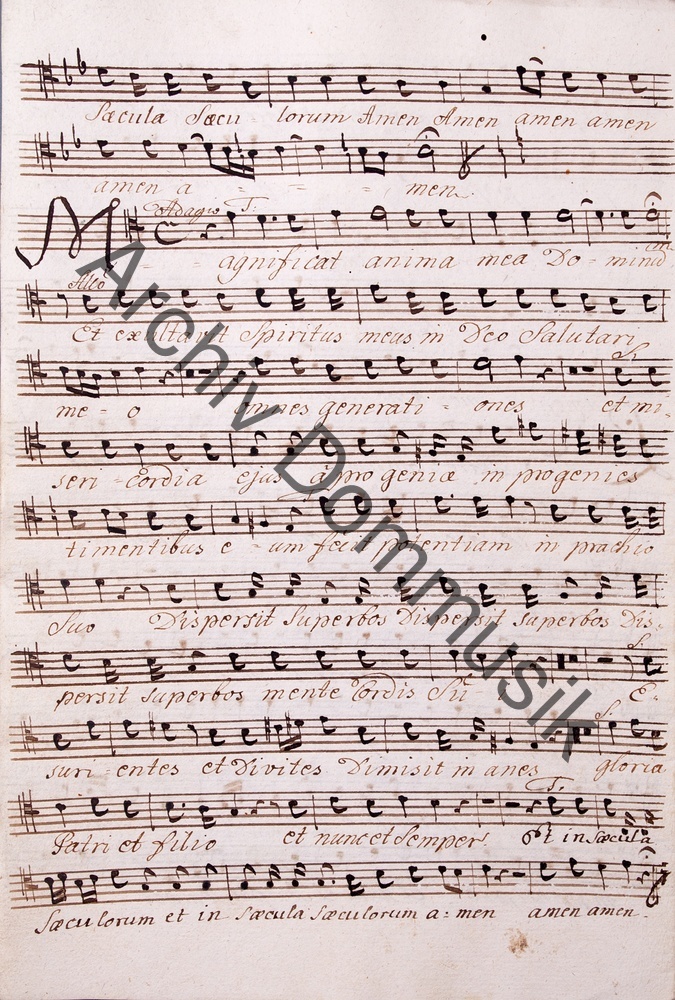 Sæcula Sæcu - lorum Amen Amen amen amen
amen a - - - - men.
Adagio T.
M - - agnificat anima mea Do - minũ
All.o
Et exultavit Spiritus meus in Deo Salutari
S.
me - o omnes generati - ones et mi -
seri - cordia ejus à progeniæ in progenies
timentibus e - um fecit potentiam in prachio
Suo Dispersit Superbos Dispersit superbos Dis -
S.
persit superbos mente Cordis Sui E -
S.
suri - entes et Divites Dimisit in anes gloria
T.
Patri et filio et nunc et Semper et in Sæcula
Sæculorum et in Sæcula Sæculorum a - men amen amen.
Archiv Dommusik